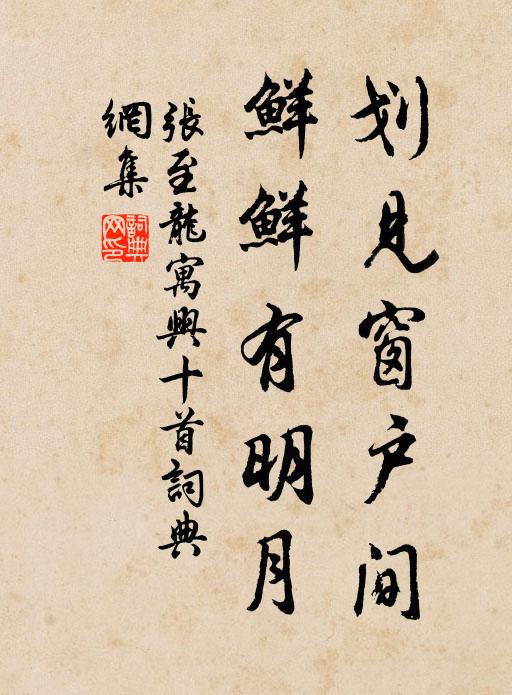 划见窗户间
鲜鲜有明月
張至龍寓興十首詞典
網集
詞典网印